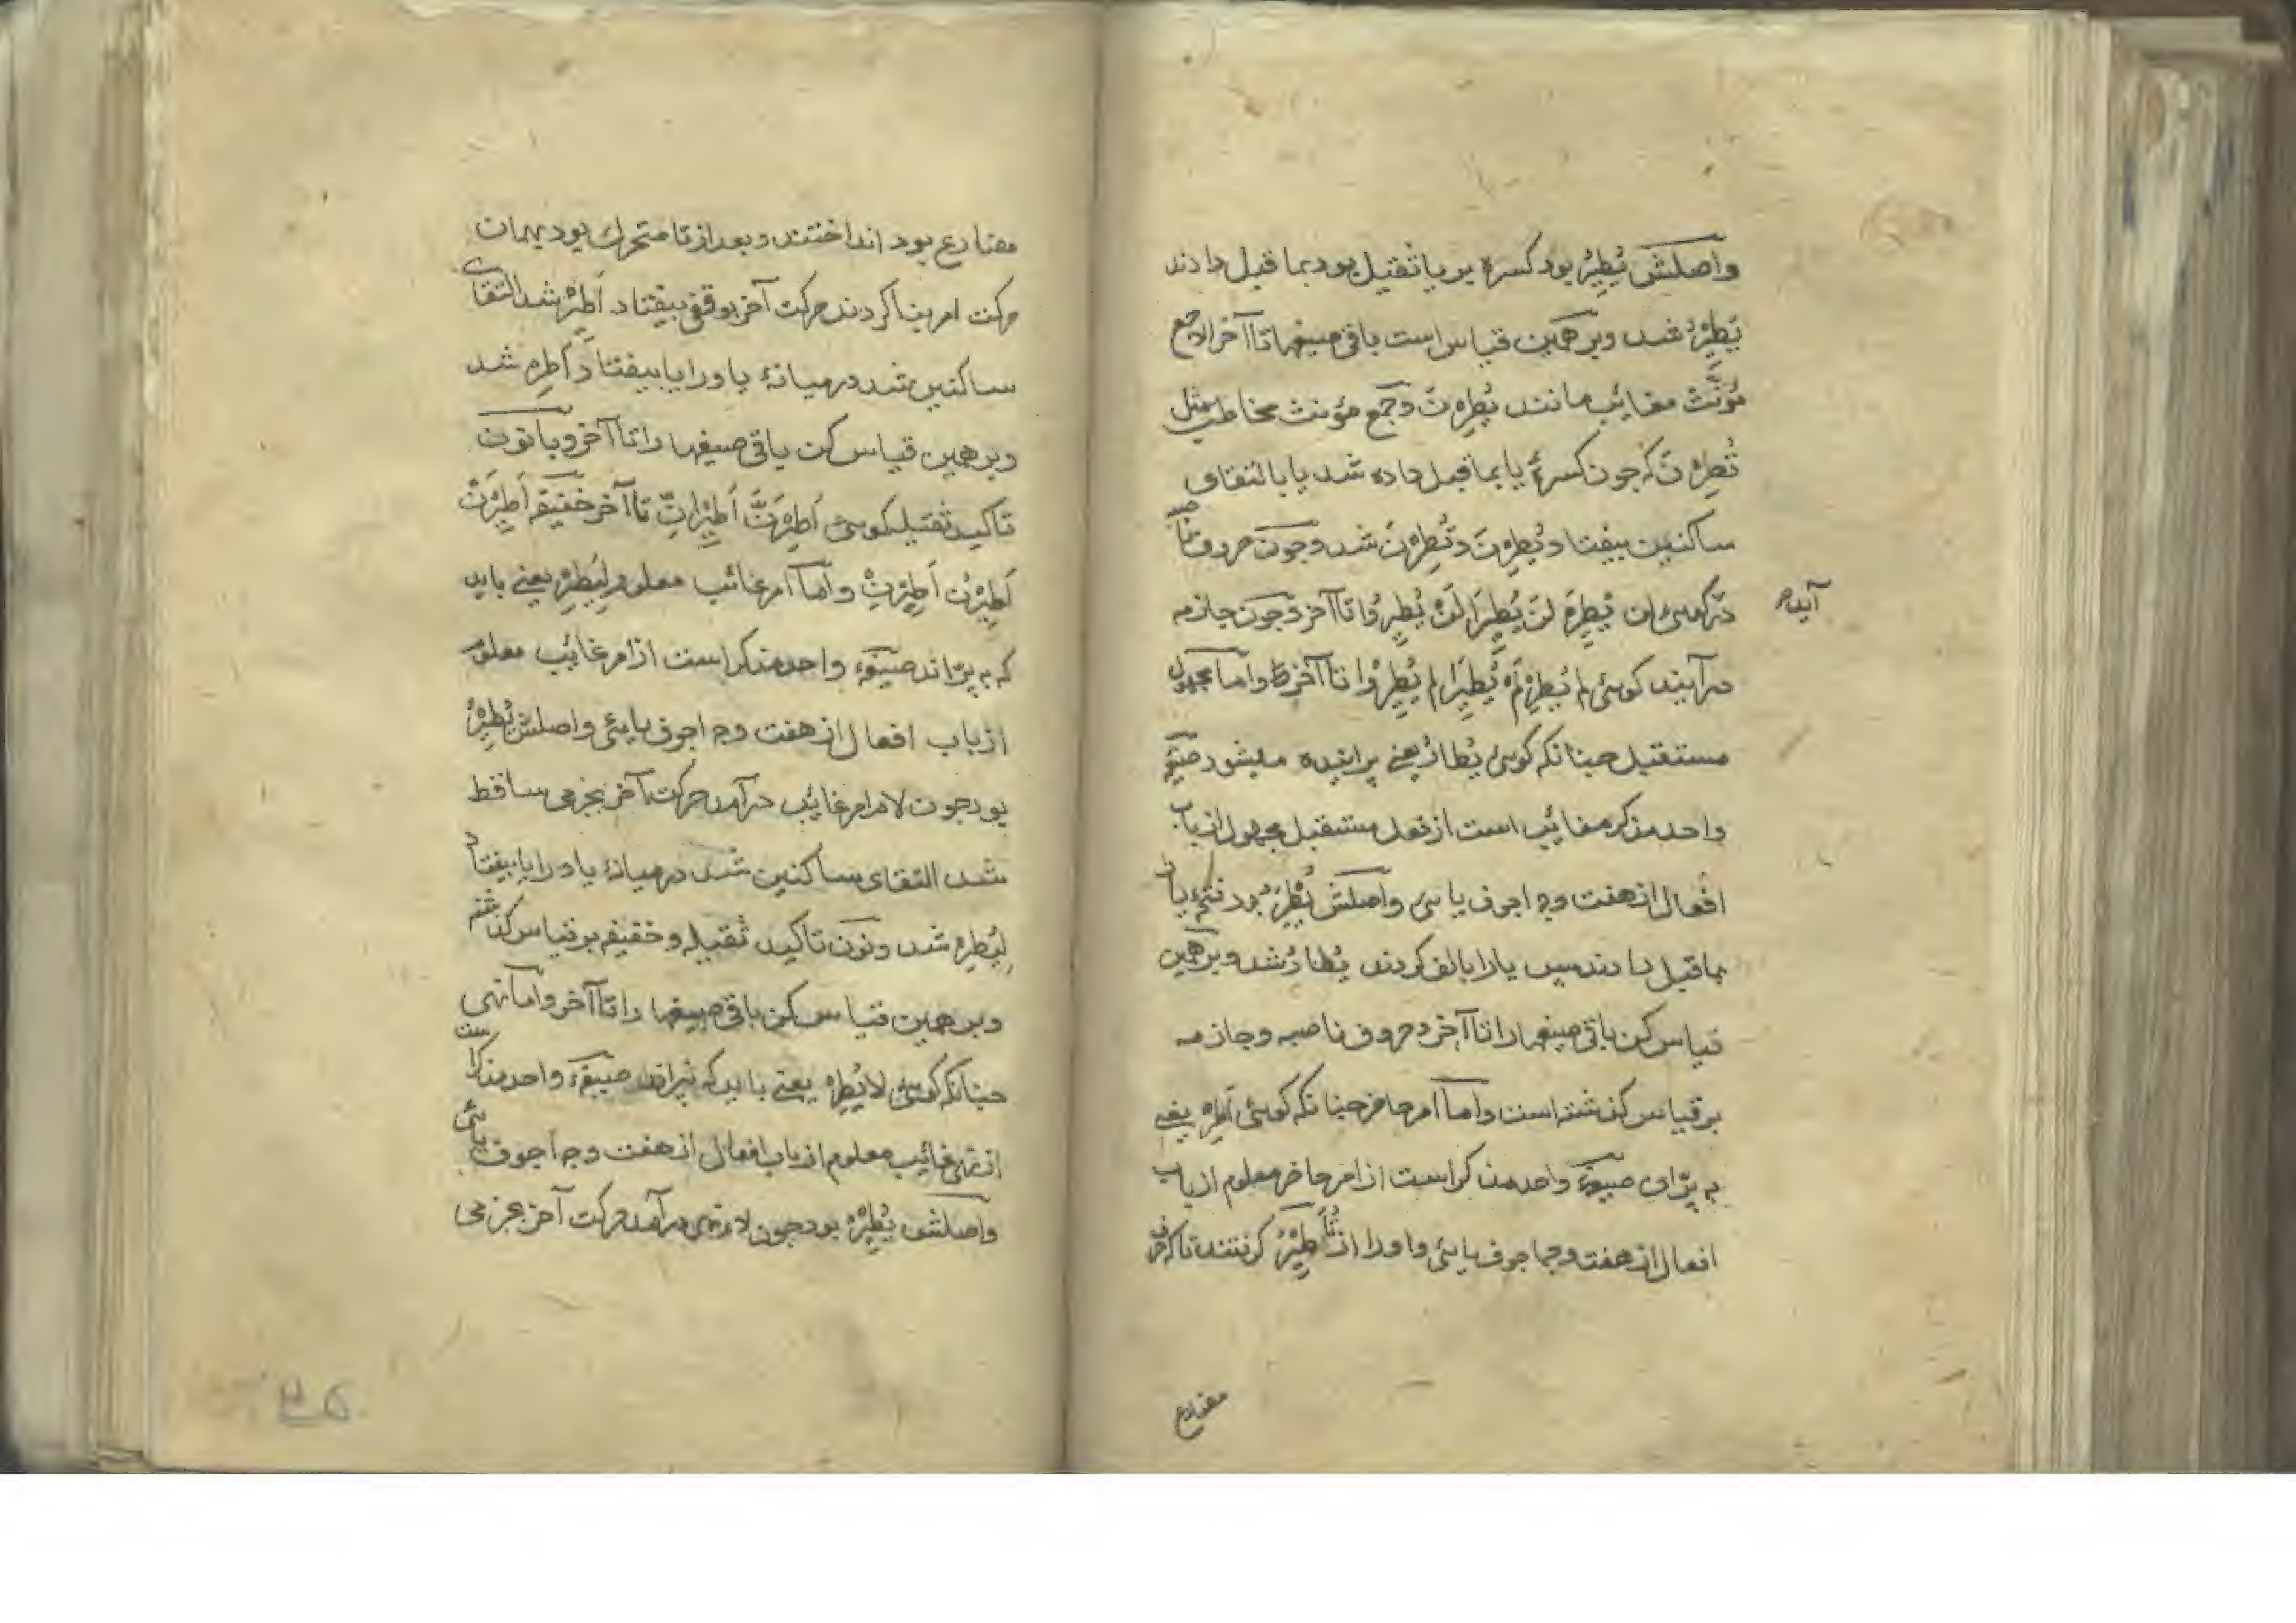 واصلش يُطْيِرُ بود كسره بر يا ثقيل بود بما قبل دادند
يُطِيرُ شد وبر همين قياس است باقی صيغها تا آخر الا جمع
مؤنّث مغائب مانند يُطِرْنَ و جمع مؤنث مخاطب مثل
تُطِرْنَ كه چون كسرهٔ يا بما قبل داده شد يا بالتقای
ساكنين بيفتاد يُطِرْنَ و تُطِرْنَ شد و چون حروف ناصبه
در گوئی لن يُطِيرَ لَنْ يُطِيرَا لَنْ يُطِيرُوا تا آخر و چون جازمه
آيد
درآيند گوئی لم يُطِرْ لَمْ يُطِيرَا لم يُطِيرُوا تا آخر واما مجهول
مستقبل چنانكه گوئی يُطَارُ يعنی پرانيده ميشود صيغهٔ
واحد مذكر مغائب است از فعل مستقبل مجهول از باب
افعال از هفت وجه اجوف يائی واصلش يُطْيَرُ بود فتحهٔ يا را
بما قبل دادند پس يا را بالف كردند يُطَارُ شد وبر همين
قياس كن باقی صيغها را تا آخر و حروف ناصبه و جازمه
بر قياس گذشته است واما امر حاضر چنانكه گوئی اَطِرْ يعنی
به پرّان صيغهٔ واحد مذكر است از امر حاضر معلوم از باب
افعال از هفت وجه اجوف يائی واو را از تُأَطْيِرُ گرفتند تا كه حرف
مضارع
مضارع بود انداختند و بعد از تا متحرك بود بهمان
حركت امر بنا كردند حركت آخر بوقفی بيفتاد اَطِيرْ شد التقای
ساكنين شد در ميانهٔ يا و را يا بيفتاد اَطِرْ شد
وبر همين قياس كن باقی صيغها را تا آخر و با نون
تاكيد ثقيله گوئی اَطِيرَنَّ اَطِيرَانِّ تا آخر خفيفه اَطِيرَنْ
اَطِيرُنْ اَطِيرِنْ واما امر غائب معلوم لِيُطِرْ يعنی بايد
كه به پرّاند صيغهٔ واحد مذكر است از امر غايب معلوم
از باب افعال از هفت وجه اجوف يائی واصلش يُطِيرُ
بود چون لام امر غايب درآمد حركت آخر بجزمی ساقط
شد التقای ساكنين شد در ميانهٔ يا و را يا بيفتاد
لِيُطِرْ شد و نون تاكيد ثقيله و خفيفه بر قياس گذشته
وبر همين قياس كن باقی صيغها را تا آخر واما نهی
چنانكه گوئی لا يُطِرْ يعنی بايد كه نپراند صيغهٔ واحد مذكر است
از نهی غائب معلوم از باب افعال از هفت وجه اجوف يائی
واصلش يُطِيرُ بود چون لاء نهی درآمد حركت آخر بجزمی